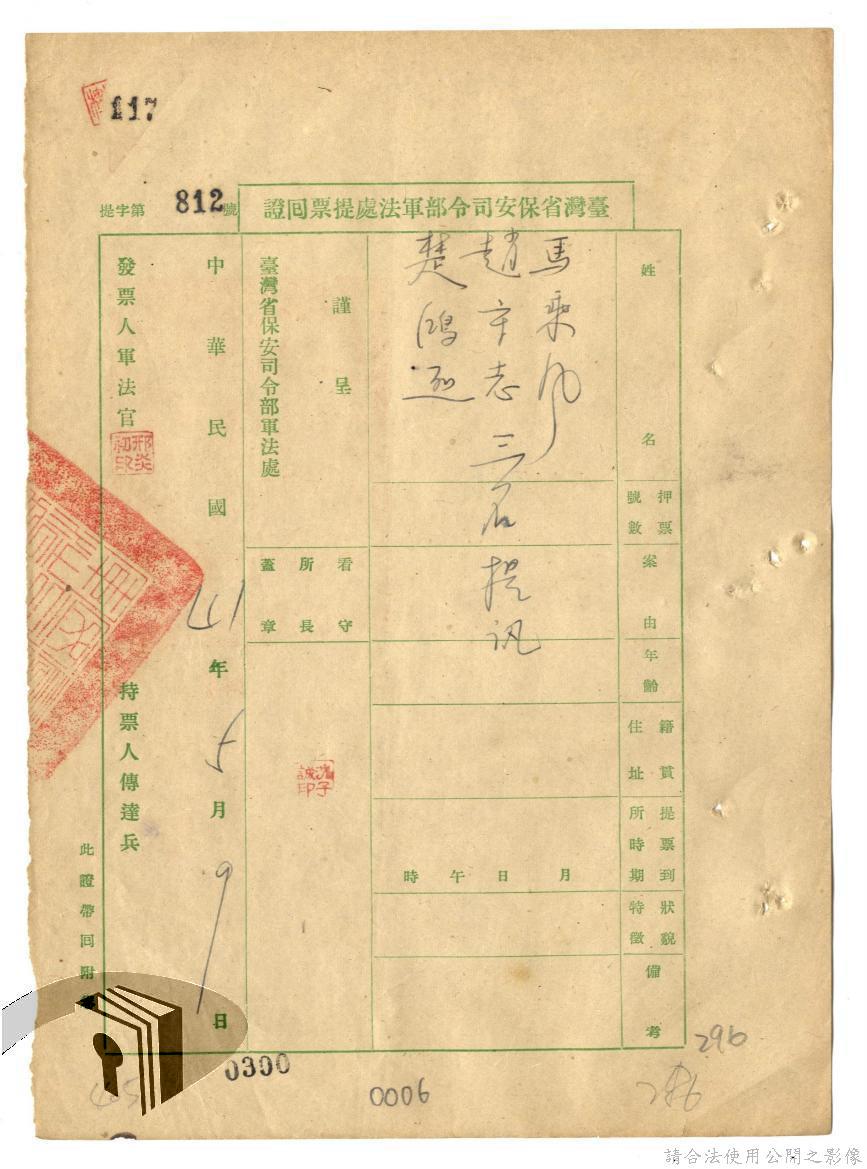 117
臺灣省保安司令部軍法處提票回證
提字第812號
姓名
馬乘風
趙守志
楚鴻烈
三名提訊
押票號數
案由
年齡
籍貫住址
提票到所時期
月 日 午 時
狀貌特徵
備考
謹呈
臺灣省保安司令部軍法處
看守所所長蓋章
中華民國41年5月9日
發票人軍法官
邢炎初印
持票人傳達兵
此證帶回附
0300
0006
296
請合法使用公開之影像